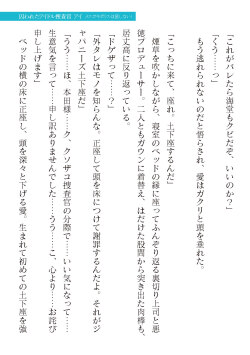 囚われたアイドル捜査官 アイ
「これがバレたら海堂もクビだぞ、いいのか？」
「くうっ……」
もう逃れられないのだと悟らされ、愛はガクリと頭を垂れた。
「こっちに来て、座れ。土下座するんだ」
煙草を吹かしながら、寝室のベッドの縁に座ってふんぞり返る裏切り上司と悪
徳プロデューサー。二人ともガウンに着替え、はだけた股間から突き出た肉棒も、
居丈高に反り返っている。
「ドゲザって……？」
「外タレはモノを知らんな。正座して頭を床につけて謝罪するんだよ。それがジ
ャパニーズ土下座だ」
「うう……は、本田様……ク、クソザコ捜査官の分際で……いい気になって……
生意気を言って……申し訳ありませんでした……うう……こ、心より……お詫び
申し上げます」
ベッドの横の床に正座し、頭を深々と下げる愛。生まれて初めての土下座を強